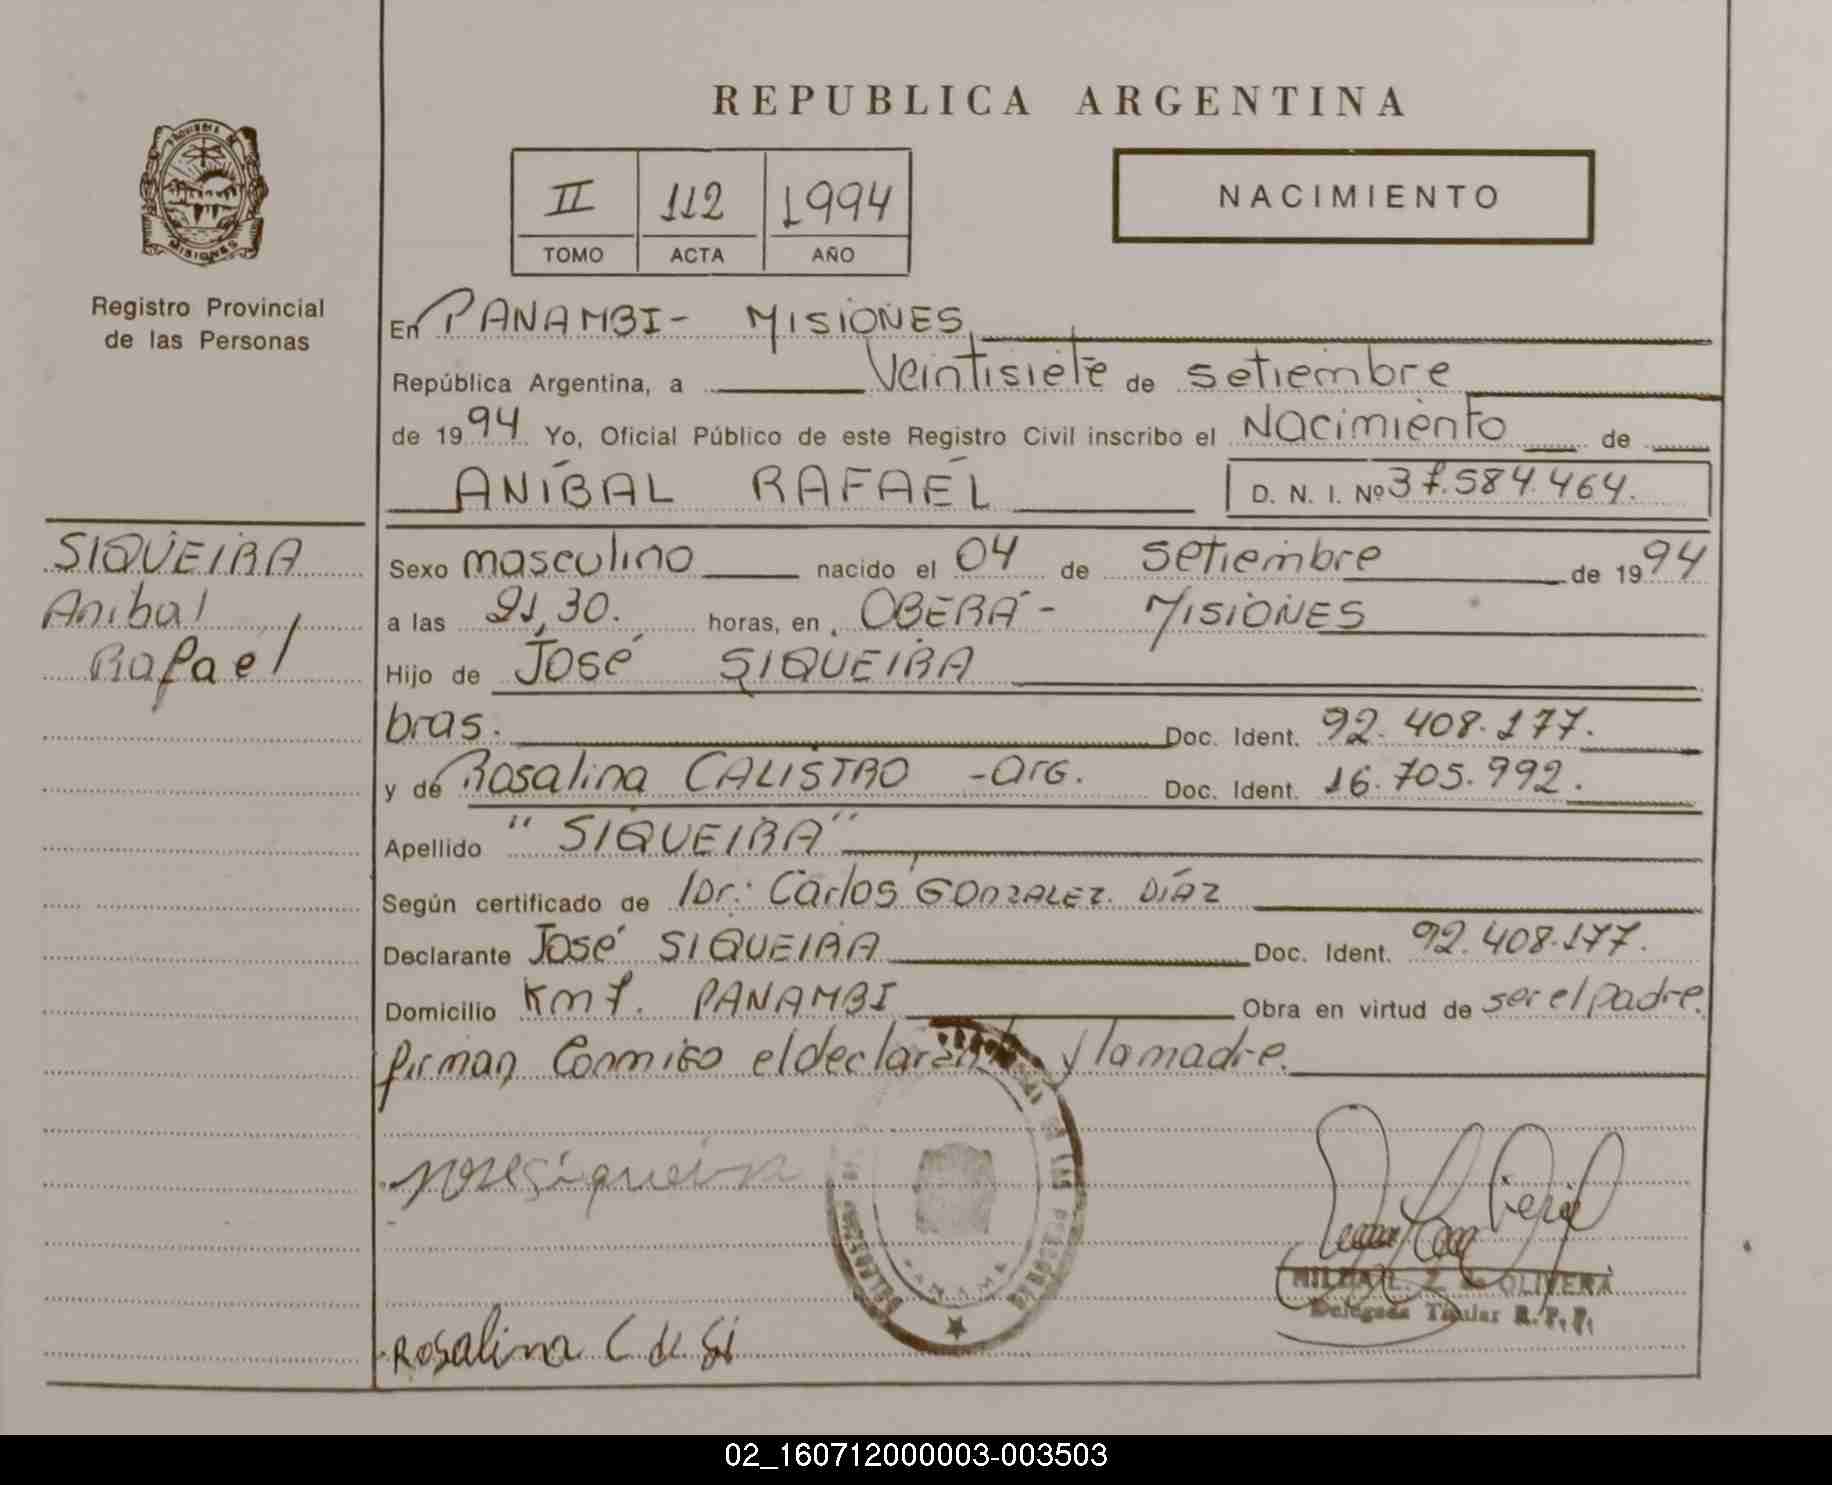 REPUBLICA ARGENTINA
PROVINCIA DE
MISIONES
Registro Provincial
de las Personas
II 112 1994
TOMO ACTA AÑO
NACIMIENTO
En PANAMBI- MISIONES
República Argentina, a Veintisiete de setiembre
de 1994 Yo, Oficial Público de este Registro Civil inscribo el Nacimiento de
ANÍBAL RAFAEL D. N. I. Nº 37.584.464.
SIQUEIRA
Anibal
Rafael
Sexo masculino nacido el 04 de setiembre de 1994
a las 21,30. horas, en OBERÁ- MISIONES
Hijo de José SIQUEIRA
bras. Doc. Ident. 92.408.177.
y de Rosalina CALISTRO -arg. Doc. Ident. 16.705.992.
Apellido "SIQUEIRA"
Según certificado de Dr: Carlos GONZALEZ DÍAZ
Declarante José SIQUEIRA Doc. Ident. 92.408.177.
Domicilio Km 7. PANAMBI Obra en virtud de ser el padre.
firman conmigo el declarante y la madre.
José Siqueira
DE LAS PERSONAS
Rosalina C de Si
Z. de OLIVERA
Delegada Titular R.P.P.
02_160712000003-003503